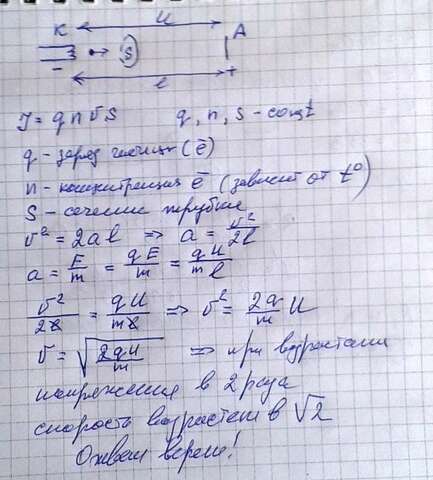 K U A
ē S
- l +
J = q n v S q, n, S - const
q - заряд частиц (ē)
n - концентрация ē (зависит от t°)
S - сечение трубки
v² = 2al => a = v²/2l
a = F/m = qE/m = qU/ml
v²/2l = qU/ml => v² = 2q/m U
v = √(2qU/m) => при возрастании
напряжения в 2 раза
скорость возрастет в √2
Ответ верен!